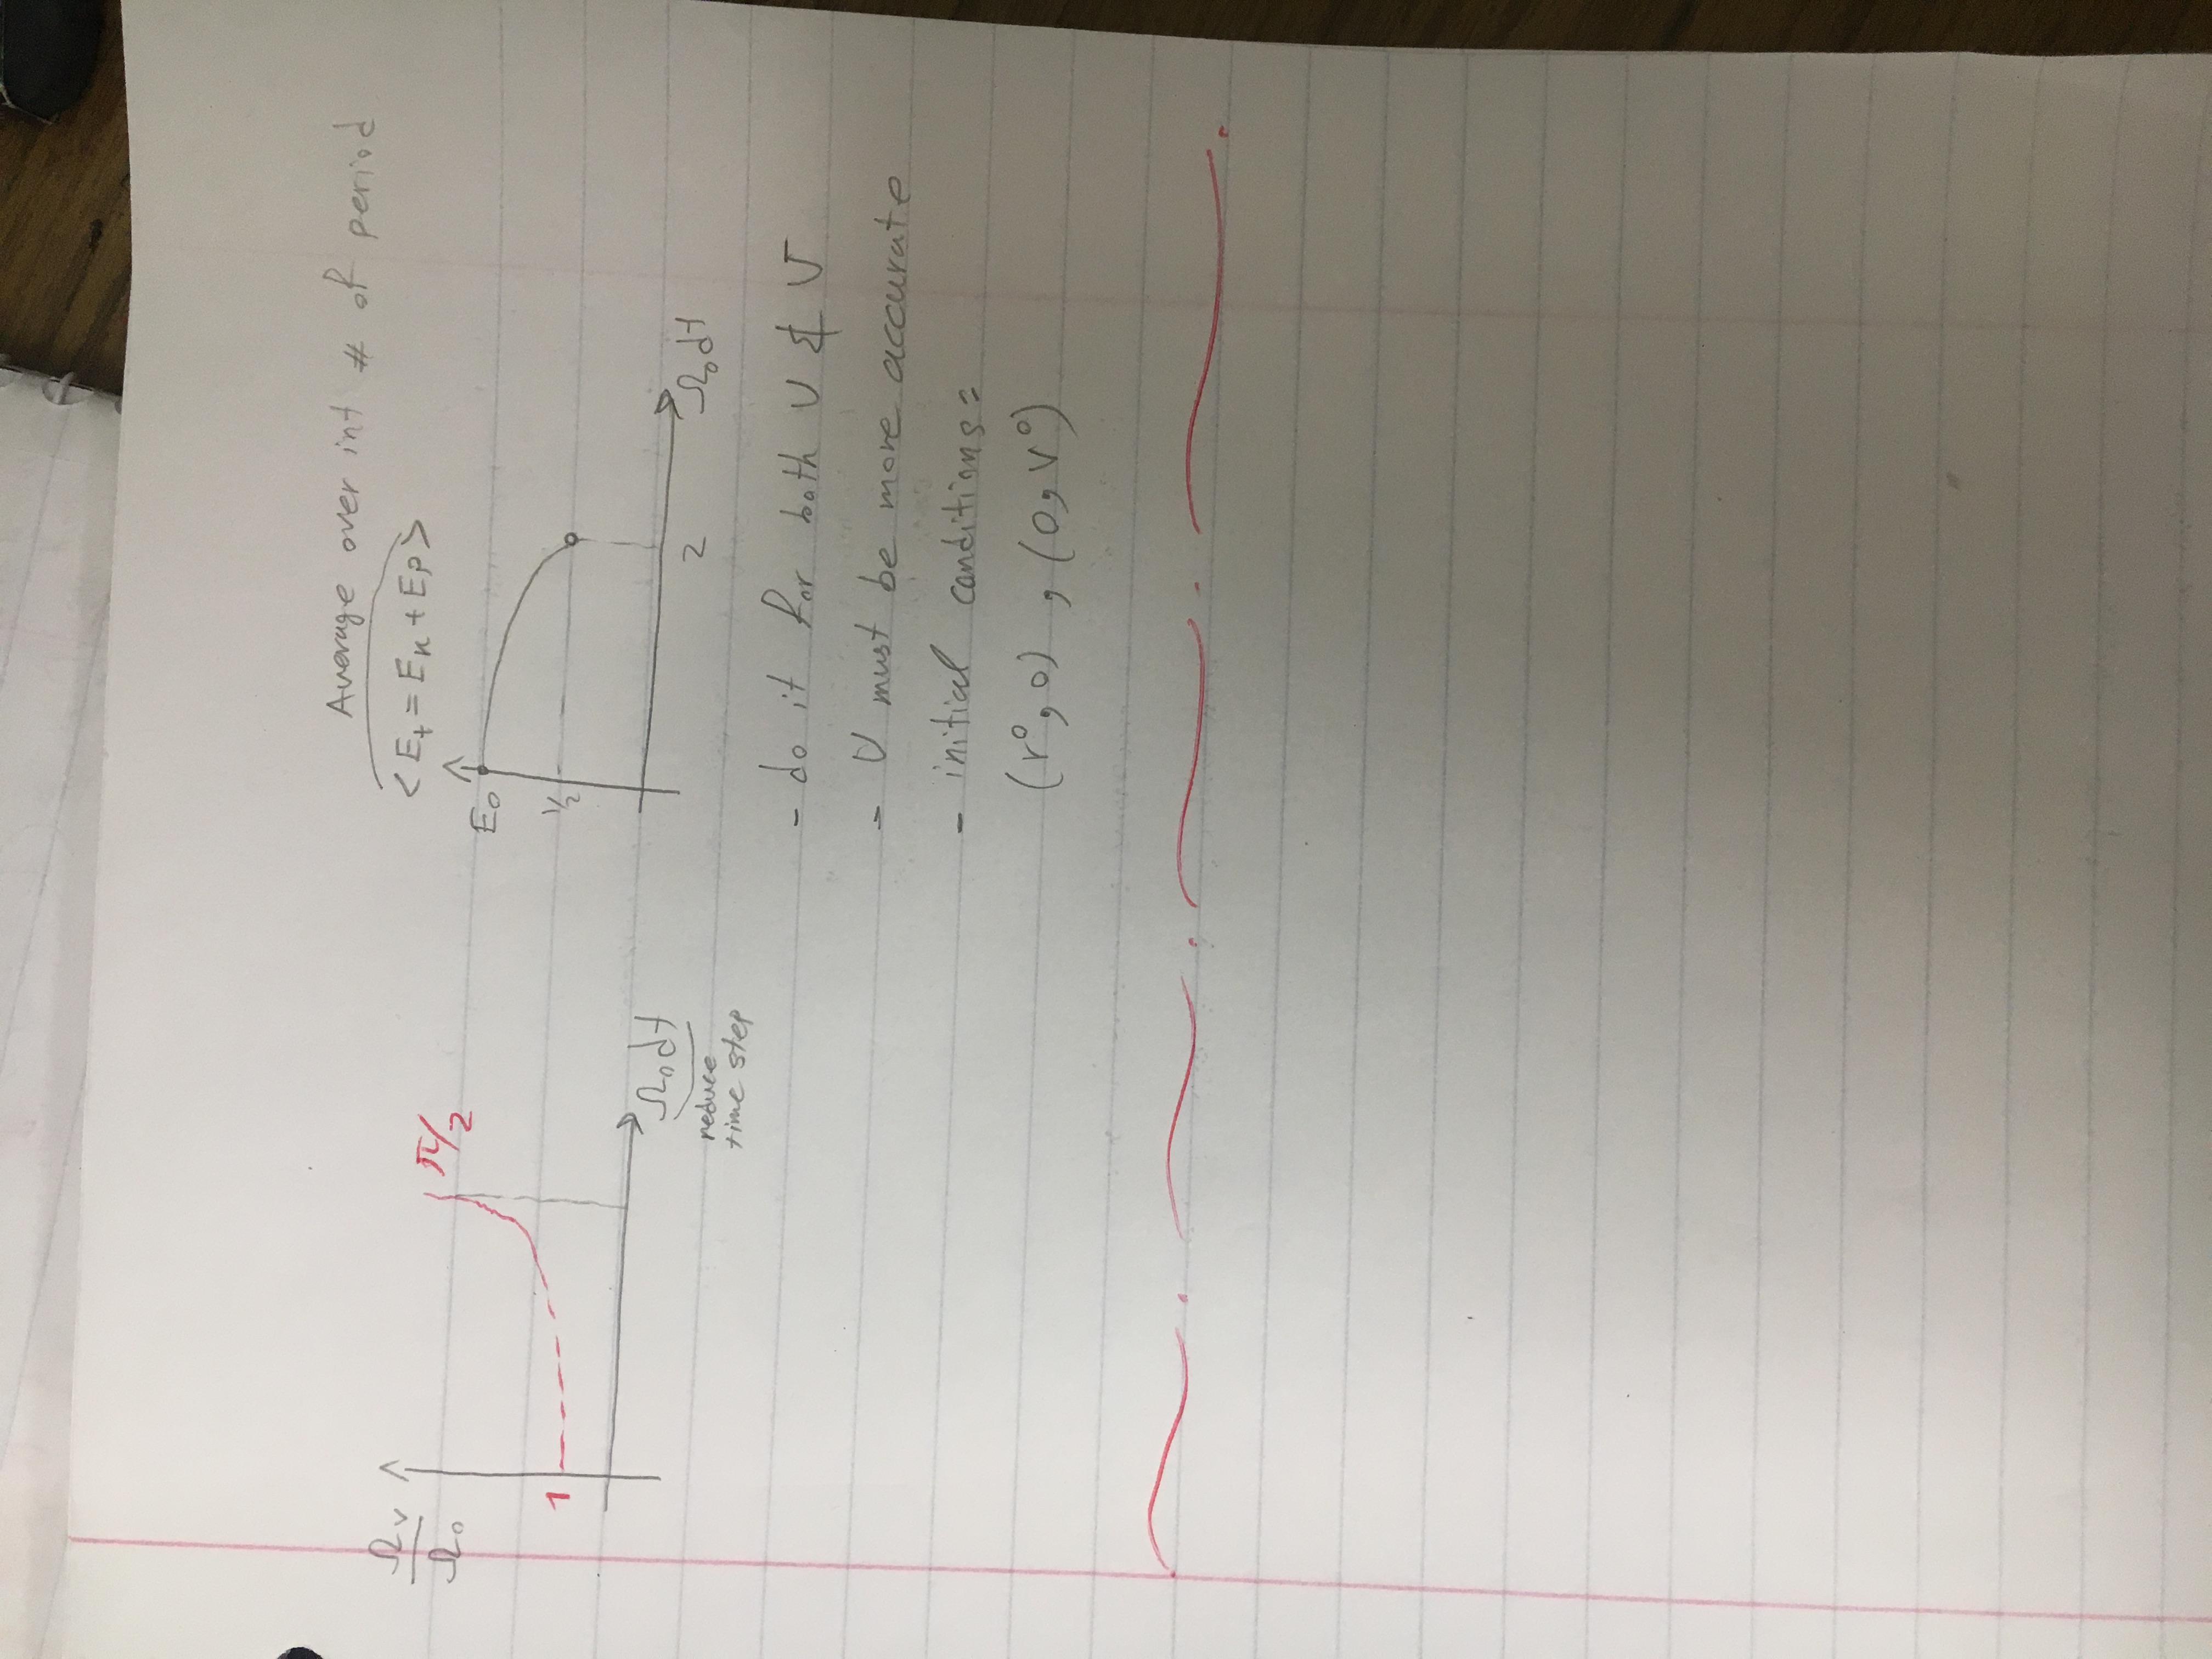 Ωv/Ω0
π/2
1
Ω0dt
reduce
time step
Average over int # of period
<Et = EK + EP>
E0
1/2
2
Ω0dt
- do it for both U & V
- U must be more accurate
- initial conditions =
(r⁰, 0) , (0, v⁰)